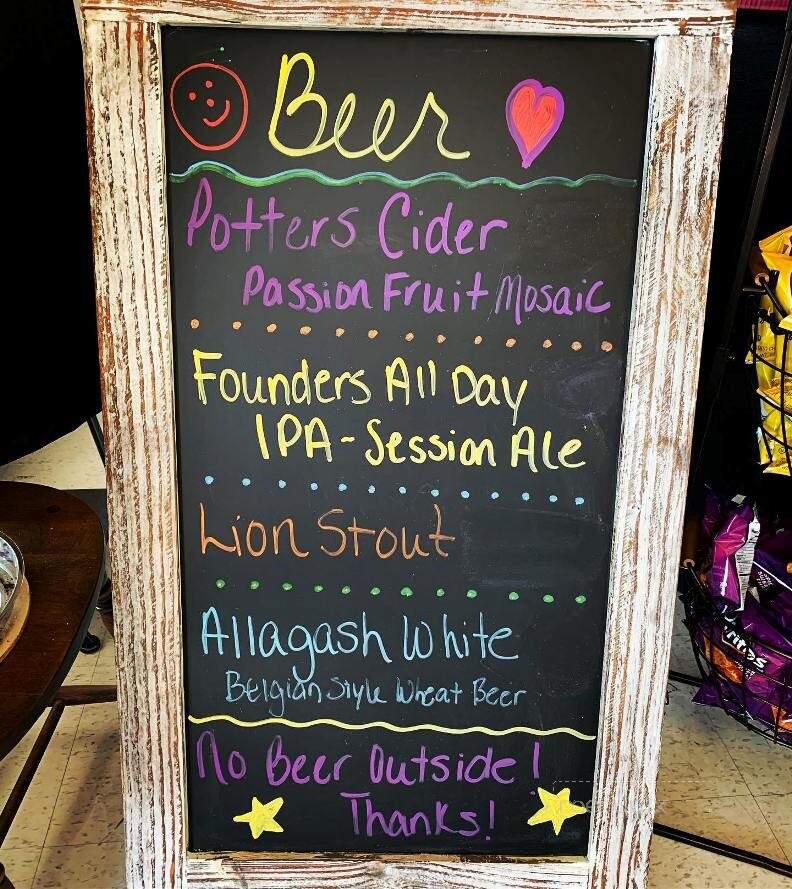 Beer
Potters Cider
Passion Fruit Mosaic
Founders All Day
IPA - Session Ale
Lion Stout
Allagash White
Belgian Style Wheat Beer
No Beer Outside!
Thanks!
Doritos